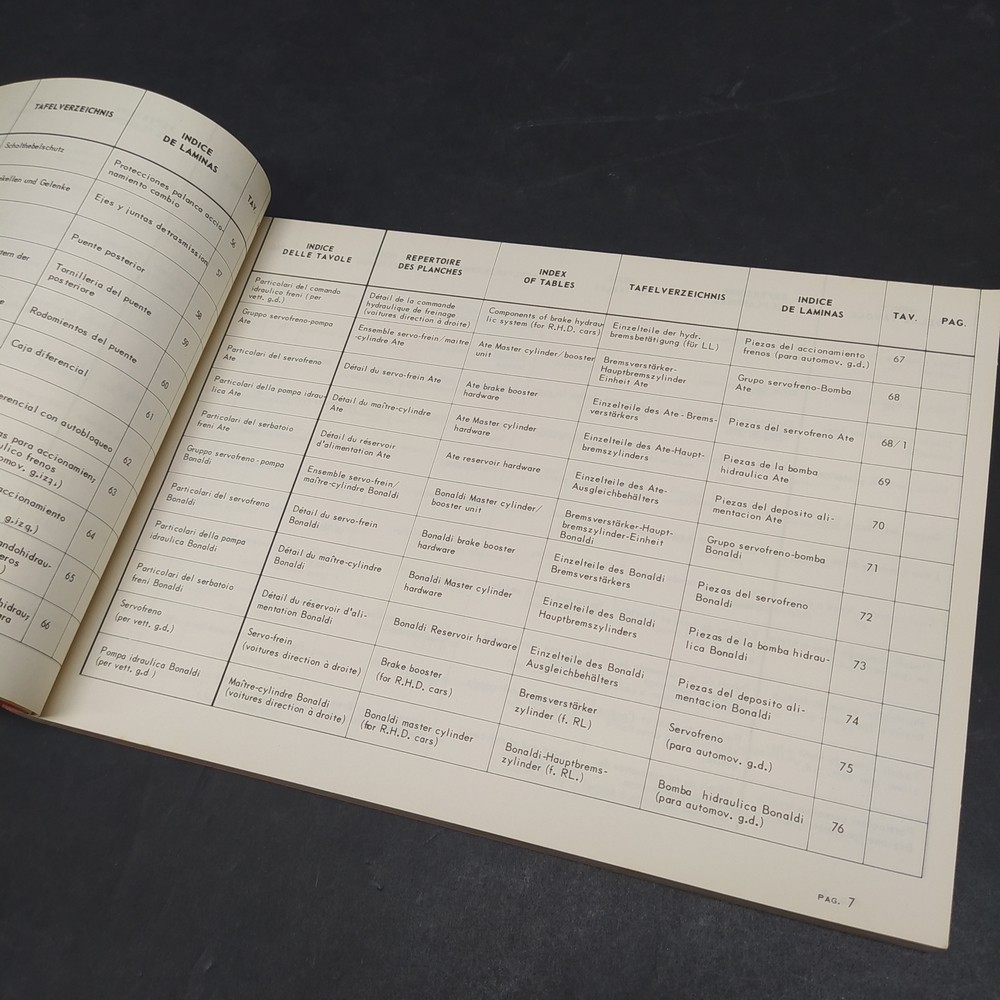 TAFELVERZEICHNIS
INDICE
DE LAMINAS
TAV
Schalthebelschutz
Protecciones palanca accio-
namiento cambio
56
kellen und Gelenke
Ejes y juntas detrasmission
57
Puente posterior
58
der
Tornilleria del puente
posteriore
59
Rodamientos del puente
60
Caja diferencial
61
erencial con autobloqueo
62
para accionamien
ulico frenos
omov. g.izq.)
63
accionamiento
g.izq.)
64
andohidrau-
eros
65
hidrau
ara
66
INDICE
DELLE TAVOLE
REPERTOIRE
DES PLANCHES
INDEX
OF TABLES
TAFELVERZEICHNIS
INDICE
DE LAMINAS
TAV.
PAG.
Particolari del comando
idraulico freni (per
vett. g.d.)
Détail de la commande
hydraulique de freinage
(voitures direction à droite)
Components of brake hydrau
lic system (for R.H.D. cars)
Einzelteile der hydr.
bremsbetätigung (für LL)
Piezas del accionamiento
frenos (para automov. g.d.)
67
Gruppo servofreno-pompa
Ate
Ensemble servo-frein/maitre
-cylindre Ate
Ate Master cylinder/booster
unit
Bremsverstärker-
Hauptbremszylinder
Einheit Ate
Grupo servofreno-Bomba
Ate
68
Particolari del servofreno
Ate
Détail du servo-frein Ate
Ate brake booster
hardware
Einzelteile des Ate-Brems-
verstärkers
Piezas del servofreno Ate
68/1
Particolari della pompa idrau
lica Ate
Détail du maître-cylindre
Ate
Ate Master cylinder
hardware
Einzelteile des Ate-Haupt-
bremszylinders
Piezas de la bomba
hidraulica Ate
69
Particolari del serbatoio
freni Ate
Détail du réservoir
d'alimentation Ate
Ate reservoir hardware
Einzelteile des Ate-
Ausgleichbehälters
Piezas del deposito ali-
mentacion Ate
70
Gruppo servofreno-pompa
Bonaldi
Ensemble servo-frein/
maître-cylindre Bonaldi
Bonaldi Master cylinder/
booster unit
Bremsverstärker-Haupt-
bremszylinder-Einheit
Bonaldi
Grupo servofreno-bomba
Bonaldi
71
Particolari del servofreno
Bonaldi
Détail du servo-frein
Bonaldi
Bonaldi brake booster
hardware
Einzelteile des Bonaldi
Bremsverstärkers
Piezas del servofreno
Bonaldi
72
Particolari della pompa
idraulica Bonaldi
Détail du maître-cylindre
Bonaldi
Bonaldi Master cylinder
hardware
Einzelteile des Bonaldi
Hauptbremszylinders
Piezas de la bomba hidrau-
lica Bonaldi
73
Particolari del serbatoio
freni Bonaldi
Détail du réservoir d'ali-
mentation Bonaldi
Bonaldi Reservoir hardware
Einzelteile des Bonaldi
Ausgleichbehälters
Piezas del deposito ali-
mentacion Bonaldi
74
Servofreno
(per vett. g.d.)
Servo-frein
(voitures direction à droite)
Brake booster
(for R.H.D. cars)
Bremsverstärker
zylinder (f. RL)
Servofreno
(para automov. g.d.)
75
Pompa idraulica Bonaldi
(per vett. g.d )
Maître-cylindre Bonaldi
(voitures direction à droite)
Bonaldi master cylinder
(for R.H.D. cars)
Bonaldi-Hauptbrems-
zylinder (f. RL.)
Bomba hidraulica Bonaldi
(para automov. g.d.)
76
PAG. 7